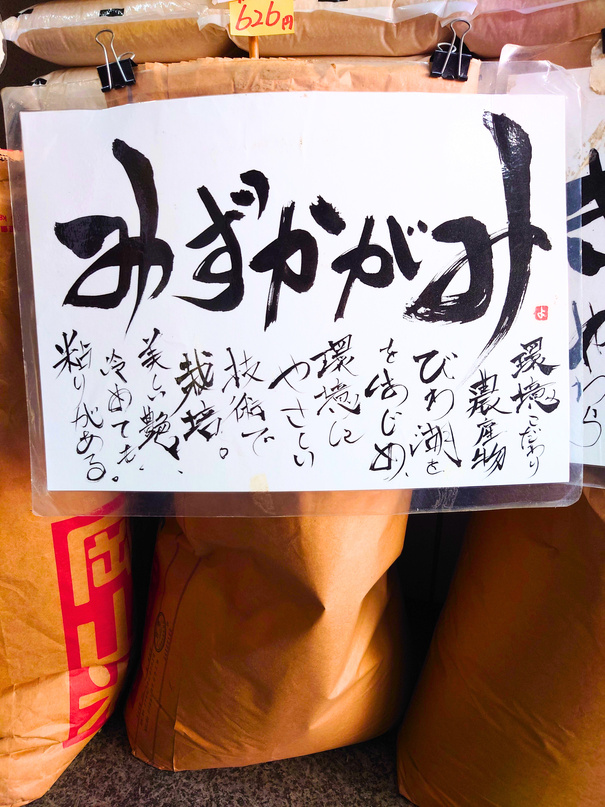 626円
みずかがみ
よ
環境こだわり
農産物
びわ湖を
をはじめ、
環境に
やさしい
技術で
栽培。
美しい艶、
冷めても、
粘りがある。